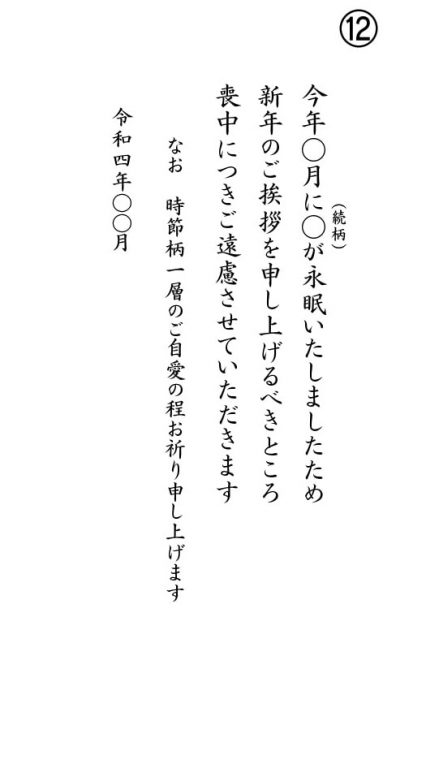 ⑫
今年〇月に〇が永眠いたしましたため
(続柄)
新年のご挨拶を申し上げるべきところ
喪中につきご遠慮させていただきます
なお　時節柄一層のご自愛の程お祈り申し上げます
令和四年〇〇月